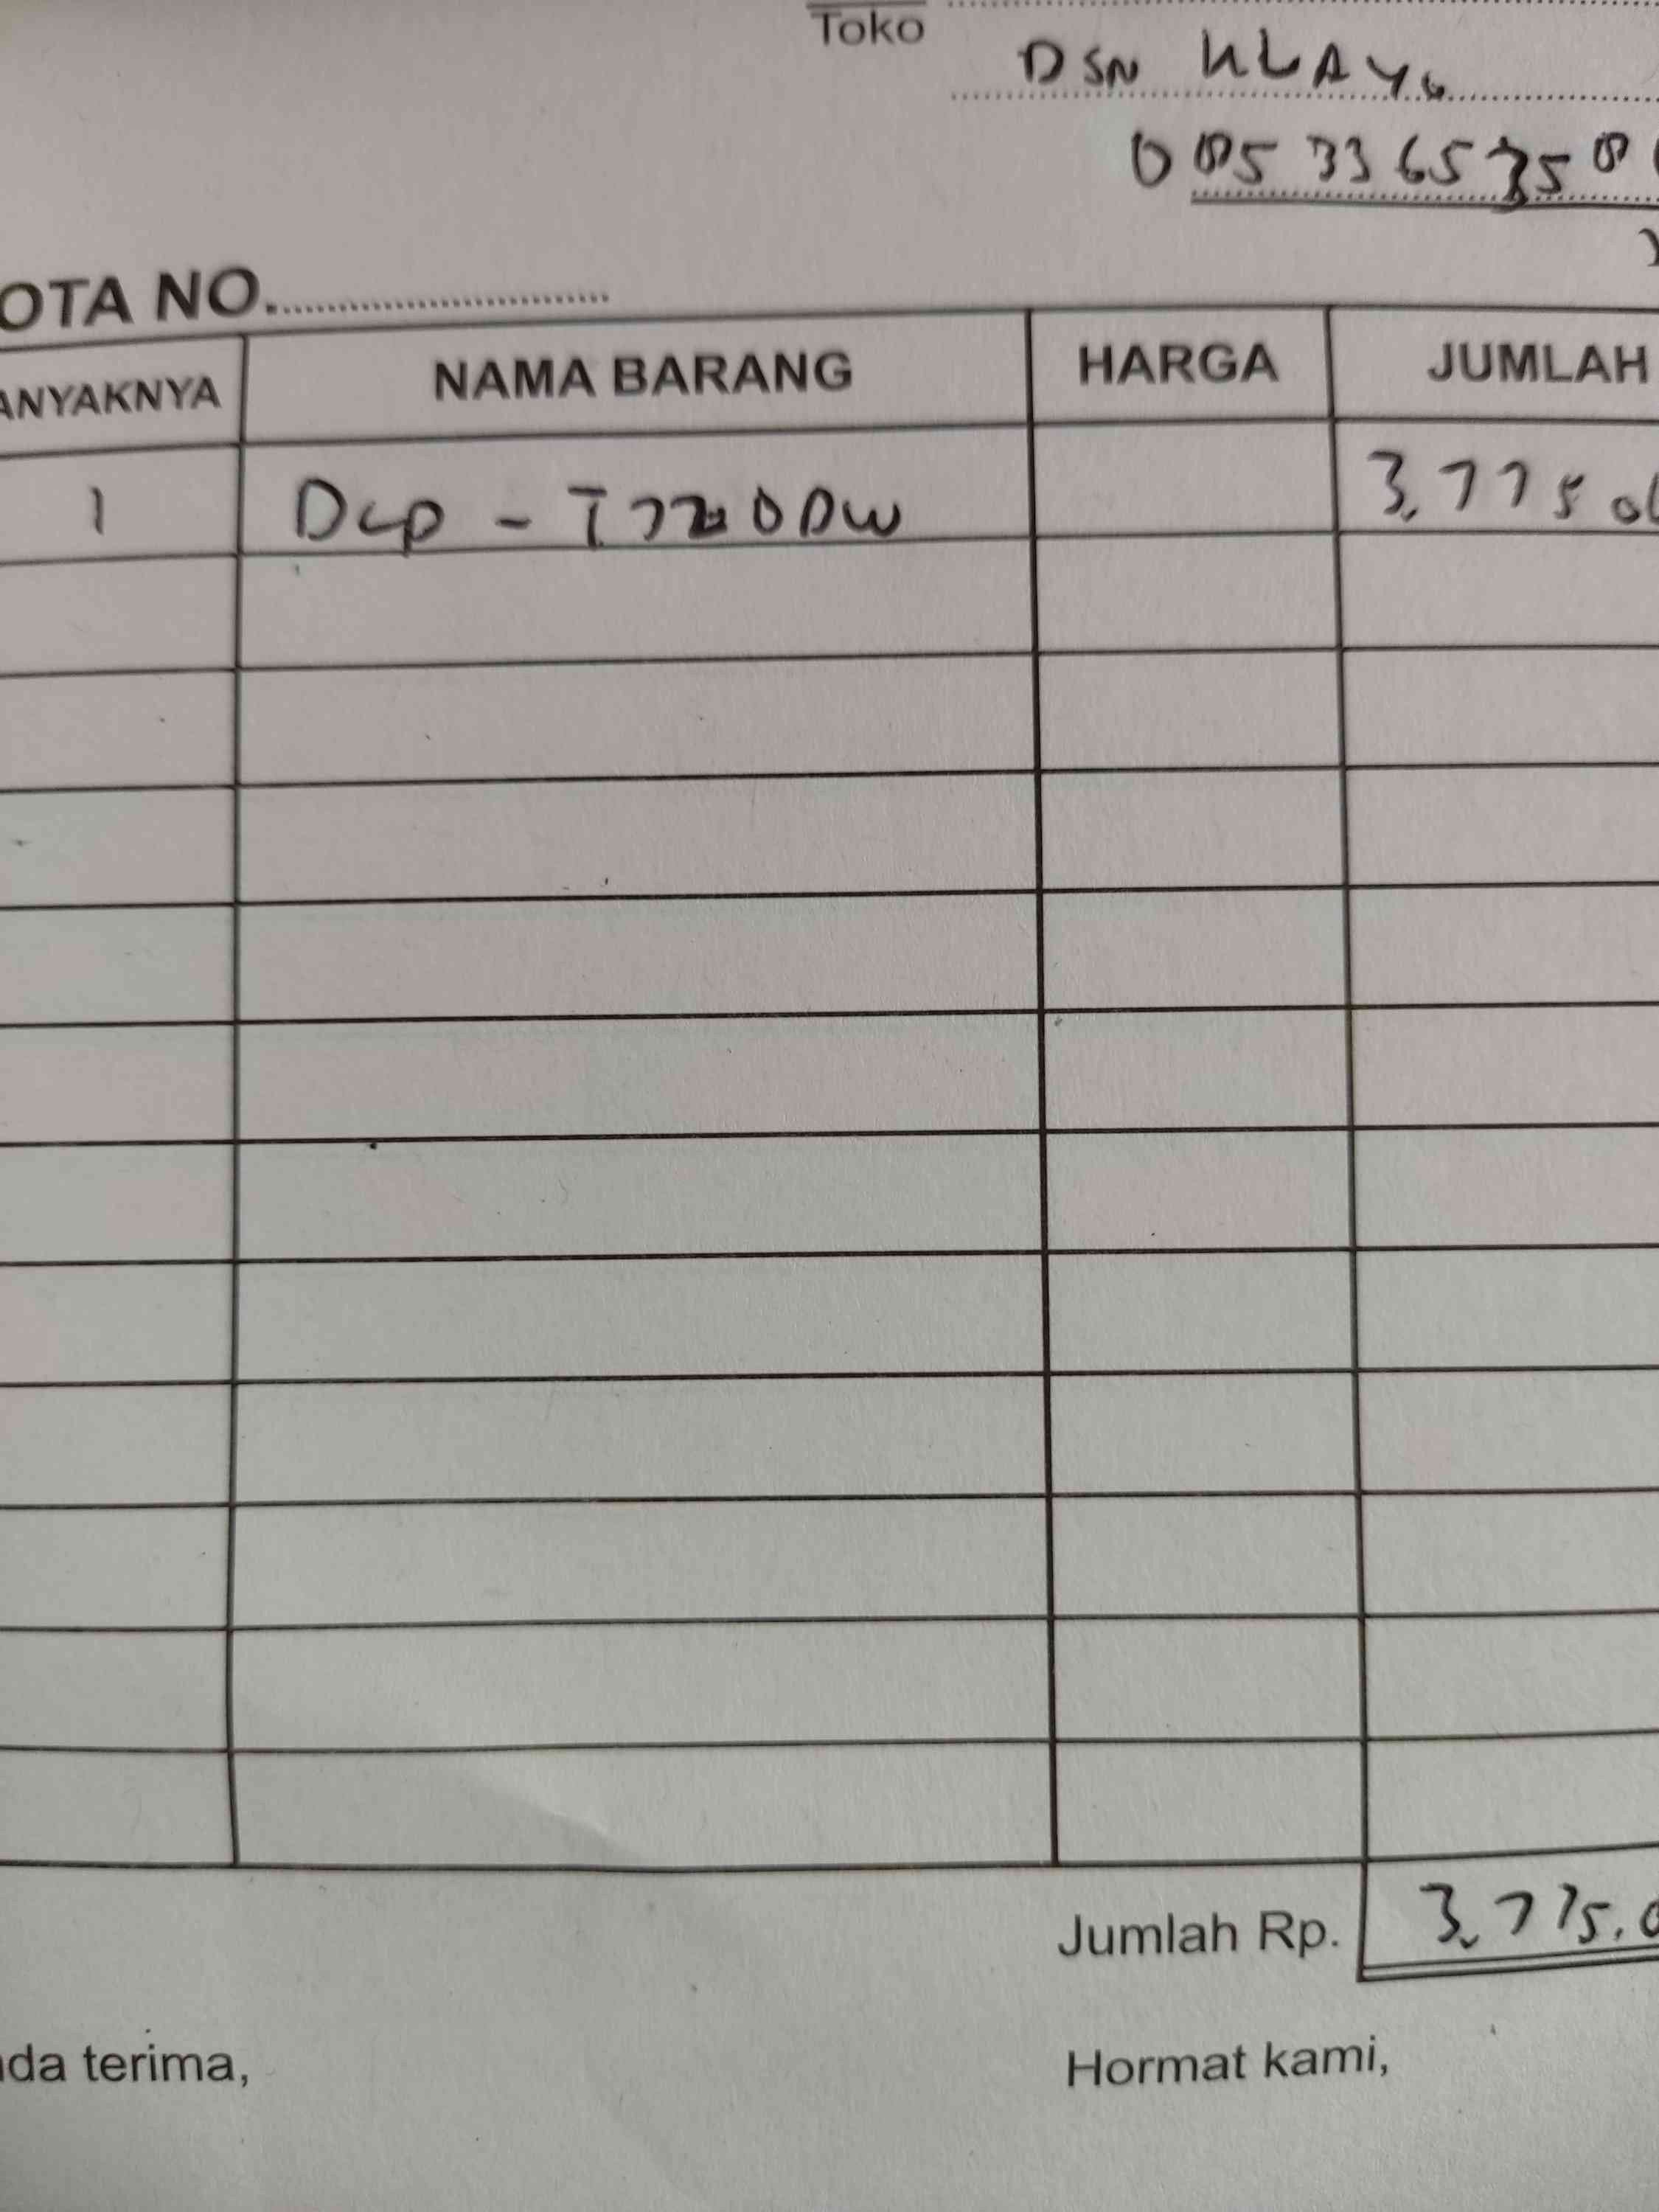 Toko
DSN KLAYU
OTA NO.
ANYAKNYA NAMA BARANG HARGA JUMLAH
1 DCP - T720DW 3.775 0
Jumlah Rp. 3.775.0
da terima, Hormat kami,